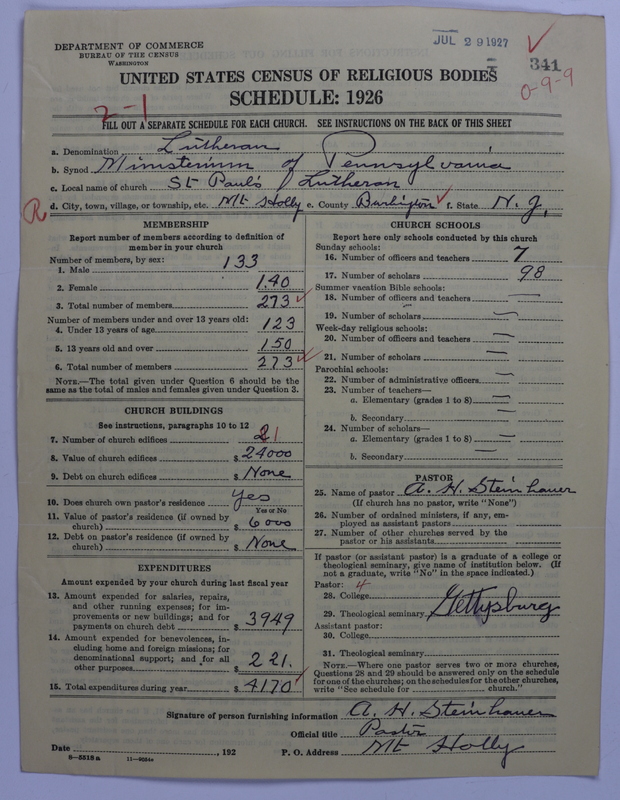 DEPARTMENT OF COMMERCE
BUREAU OF THE CENSUS
WASHINGTON
JUL 29 1927
341
0-9-9
UNITED STATES CENSUS OF RELIGIOUS BODIES
SCHEDULE: 1926
2-1
FILL OUT A SEPARATE SCHEDULE FOR EACH CHURCH. SEE INSTRUCTIONS ON THE BACK OF THIS SHEET
a. Denomination Lutheran
b. Synod Ministerium of Pennsylvania
c. Local name of church St Paul's Lutheran
R
d. City, town, village, or township, etc. Mt Holly e. County Burlington f. State N. J.
MEMBERSHIP
Report number of members according to definition of
member in your church
Number of members, by sex:
1. Male 133
2. Female 140
3. Total number of members 273
Number of members under and over 13 years old:
4. Under 13 years of age 123
5. 13 years old and over 150
6. Total number of members 273
NOTE.—The total given under Question 6 should be the
same as the total of males and females given under Question 3.
CHURCH BUILDINGS
See instructions, paragraphs 10 to 12
7. Number of church edifices 2 1
8. Value of church edifices $ 24000
9. Debt on church edifices $ None
10. Does church own pastor's residence Yes
Yes or No
11. Value of pastor's residence (if owned by
church) $ 6000
12. Debt on pastor's residence (if owned by
church) $ None
EXPENDITURES
Amount expended by your church during last fiscal year
13. Amount expended for salaries, repairs,
and other running expenses; for im-
provements or new buildings; and for
payments on church debt $ 3949
14. Amount expended for benevolences, in-
cluding home and foreign missions; for
denominational support; and for all
other purposes $ 221.
15. Total expenditures during year $ 4170
CHURCH SCHOOLS
Report here only schools conducted by this church
Sunday schools:
16. Number of officers and teachers 7
17. Number of scholars 98
Summer vacation Bible schools:
18. Number of officers and teachers —
19. Number of scholars —
Week-day religious schools:
20. Number of officers and teachers —
21. Number of scholars —
Parochial schools:
22. Number of administrative officers —
23. Number of teachers—
a. Elementary (grades 1 to 8) —
b. Secondary —
24. Number of scholars—
a. Elementary (grades 1 to 8) —
b. Secondary —
PASTOR
25. Name of pastor A. H. Steinhauer
(If church has no pastor, write "None")
26. Number of ordained ministers, if any, em-
ployed as assistant pastors
27. Number of other churches served by the
pastor or his assistants
If pastor (or assistant pastor) is a graduate of a college or
theological seminary, give name of institution below. (If
not a graduate, write "No" in the space indicated.)
Pastor: 4
28. College
29. Theological seminary Gettysburg
Assistant pastor:
30. College
31. Theological seminary
NOTE.—Where one pastor serves two or more churches,
Questions 28 and 29 should be answered only on the schedule
for one of the churches; on the schedules for the other churches,
write "See schedule for church."
Signature of person furnishing information A. H. Steinhauer
Official title Pastor
Date , 192 P. O. Address Mt Holly
8-5518 a 11-9054